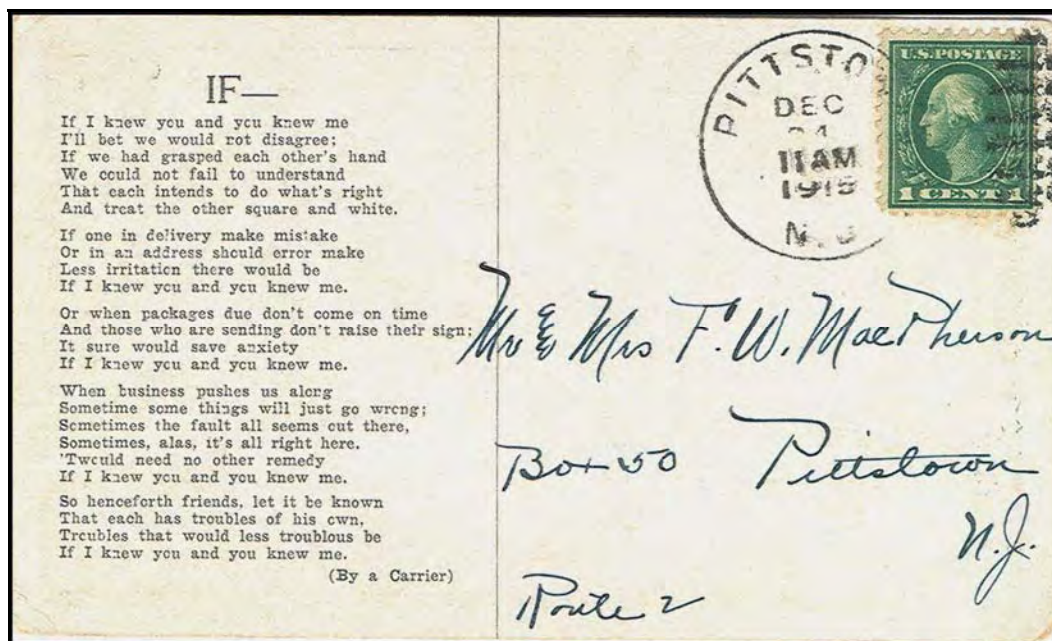 IF—
If I knew you and you knew me
I'll bet we would not disagree;
If we had grasped each other's hand
We could not fail to understand
That each intends to do what's right
And treat the other square and white.
If one in delivery make mistake
Or in an address should error make
Less irritation there would be
If I knew you and you knew me.
Or when packages due don't come on time
And those who are sending don't raise their sign;
It sure would save anxiety
If I knew you and you knew me.
When business pushes us along
Sometime some things will just go wrong;
Sometimes the fault all seems out there,
Sometimes, alas, it's all right here.
'Twould need no other remedy
If I knew you and you knew me.
So henceforth friends, let it be known
That each has troubles of his own,
Troubles that would less troublous be
If I knew you and you knew me.
(By a Carrier)
PITTSTO
DEC
11 AM
N.J
U.S. POSTAGE
1 CENT 1
Mr & Mrs F. W. MacPherson
Box 50 Pittstown
N.J.
Route 2